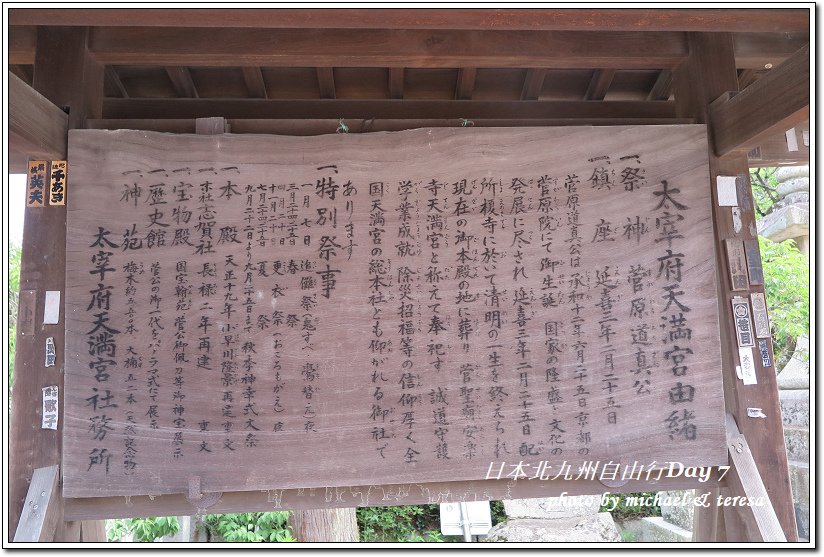 太宰府天満宮由緒
一、祭神 菅原道真公
一、鎮座 延喜三年二月二十五日
菅原道真公は承和十二年六月二十五日京都の
菅原院にて御生誕 国家の隆盛と文化の
発展に尽され 延喜三年二月二十五日 配
所榎寺に於いて清明の一生を終えられ
現在の御本殿の地に葬り 菅聖廟 安楽
寺天満宮と称えて奉祀す 誠道守護
学業成就 除災招福等の信仰厚く全
国天満宮の総本社とも仰がれる御社で
あります
一、特別祭事
一月七日 追儺祭(鬼すべ 鷽替え)夜
春祭
更衣祭(おころもがえ)
夏祭
九月二十二日より九月二十五日まで 秋季神幸式大祭
一、本殿 天正十九年 小早川隆景再建 重文
一、末社志賀社 長禄二年再建 重文
一、宝物殿 国宝翰苑 菅公御佩刀等御神宝展示
一、歴史館 菅公の御一代をパノラマ式にて展示
一、神苑
太宰府天満宮社務所
日本北九州自由行Day 7
photo by michael & teresa